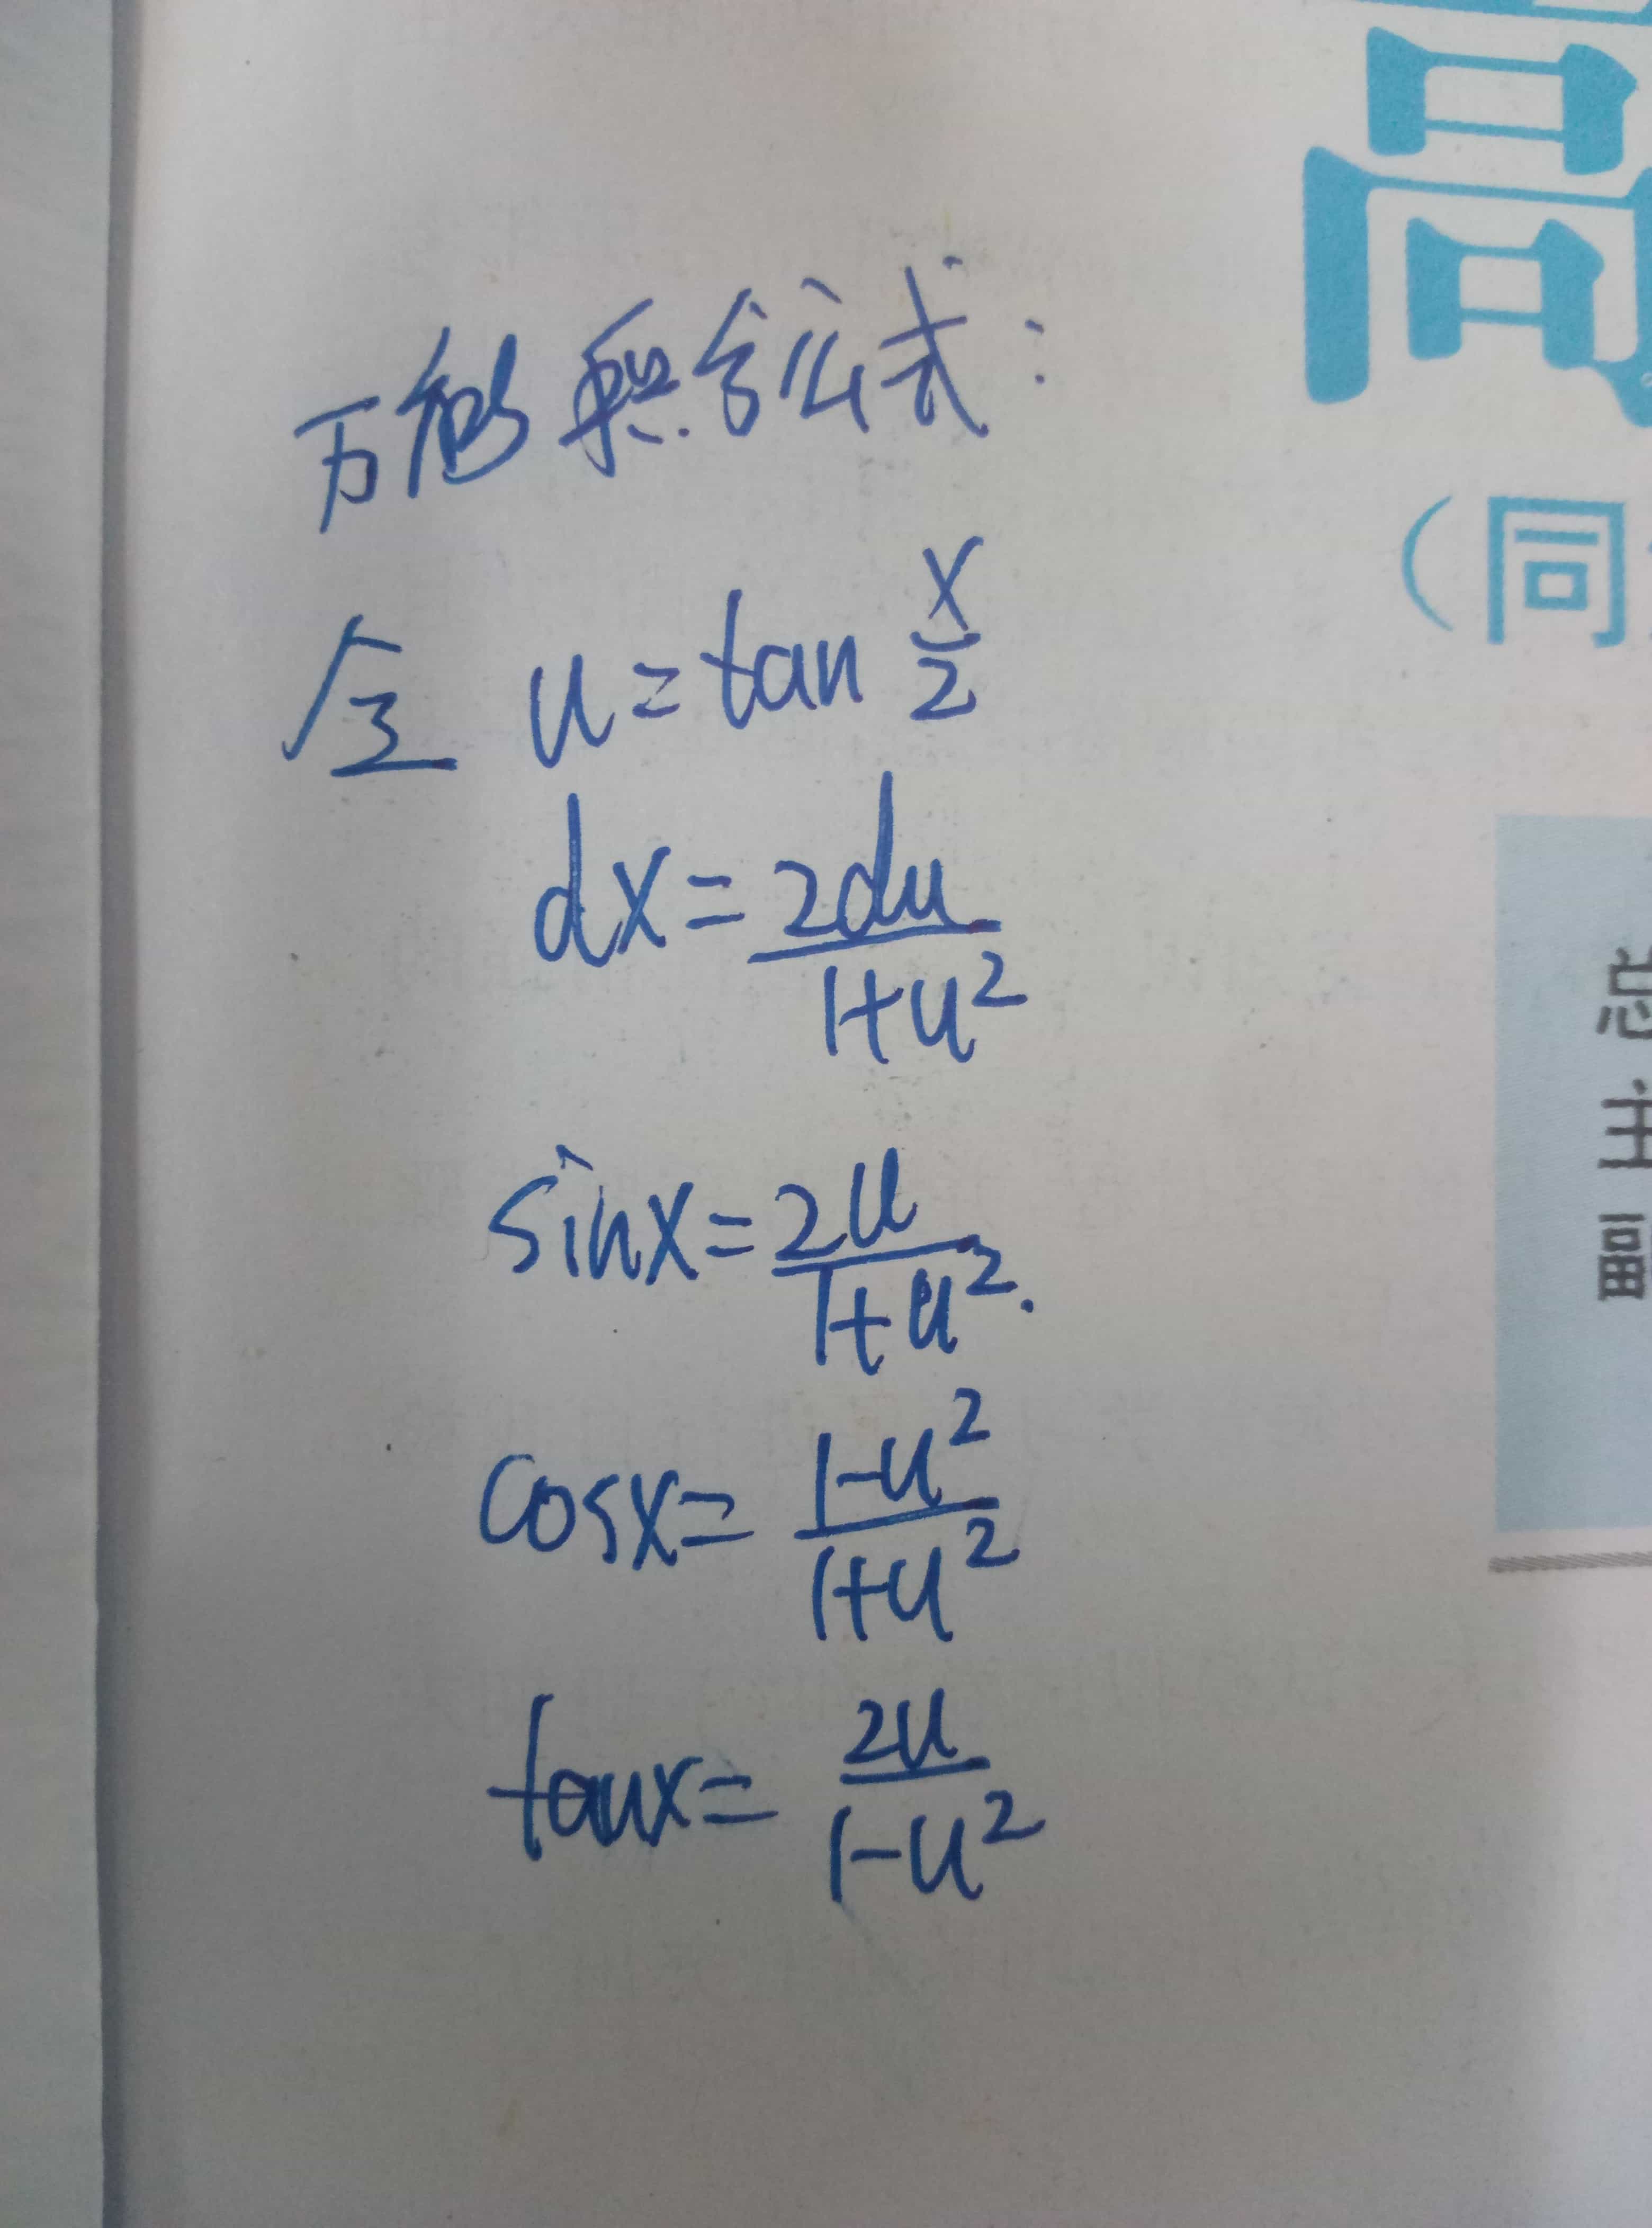 万能积分公式:
令 u=tan x/2
dx=2du/1+u²
sinx=2u/1+u².
cosx=1-u²/1+u²
tanx=2u/1-u²
(同